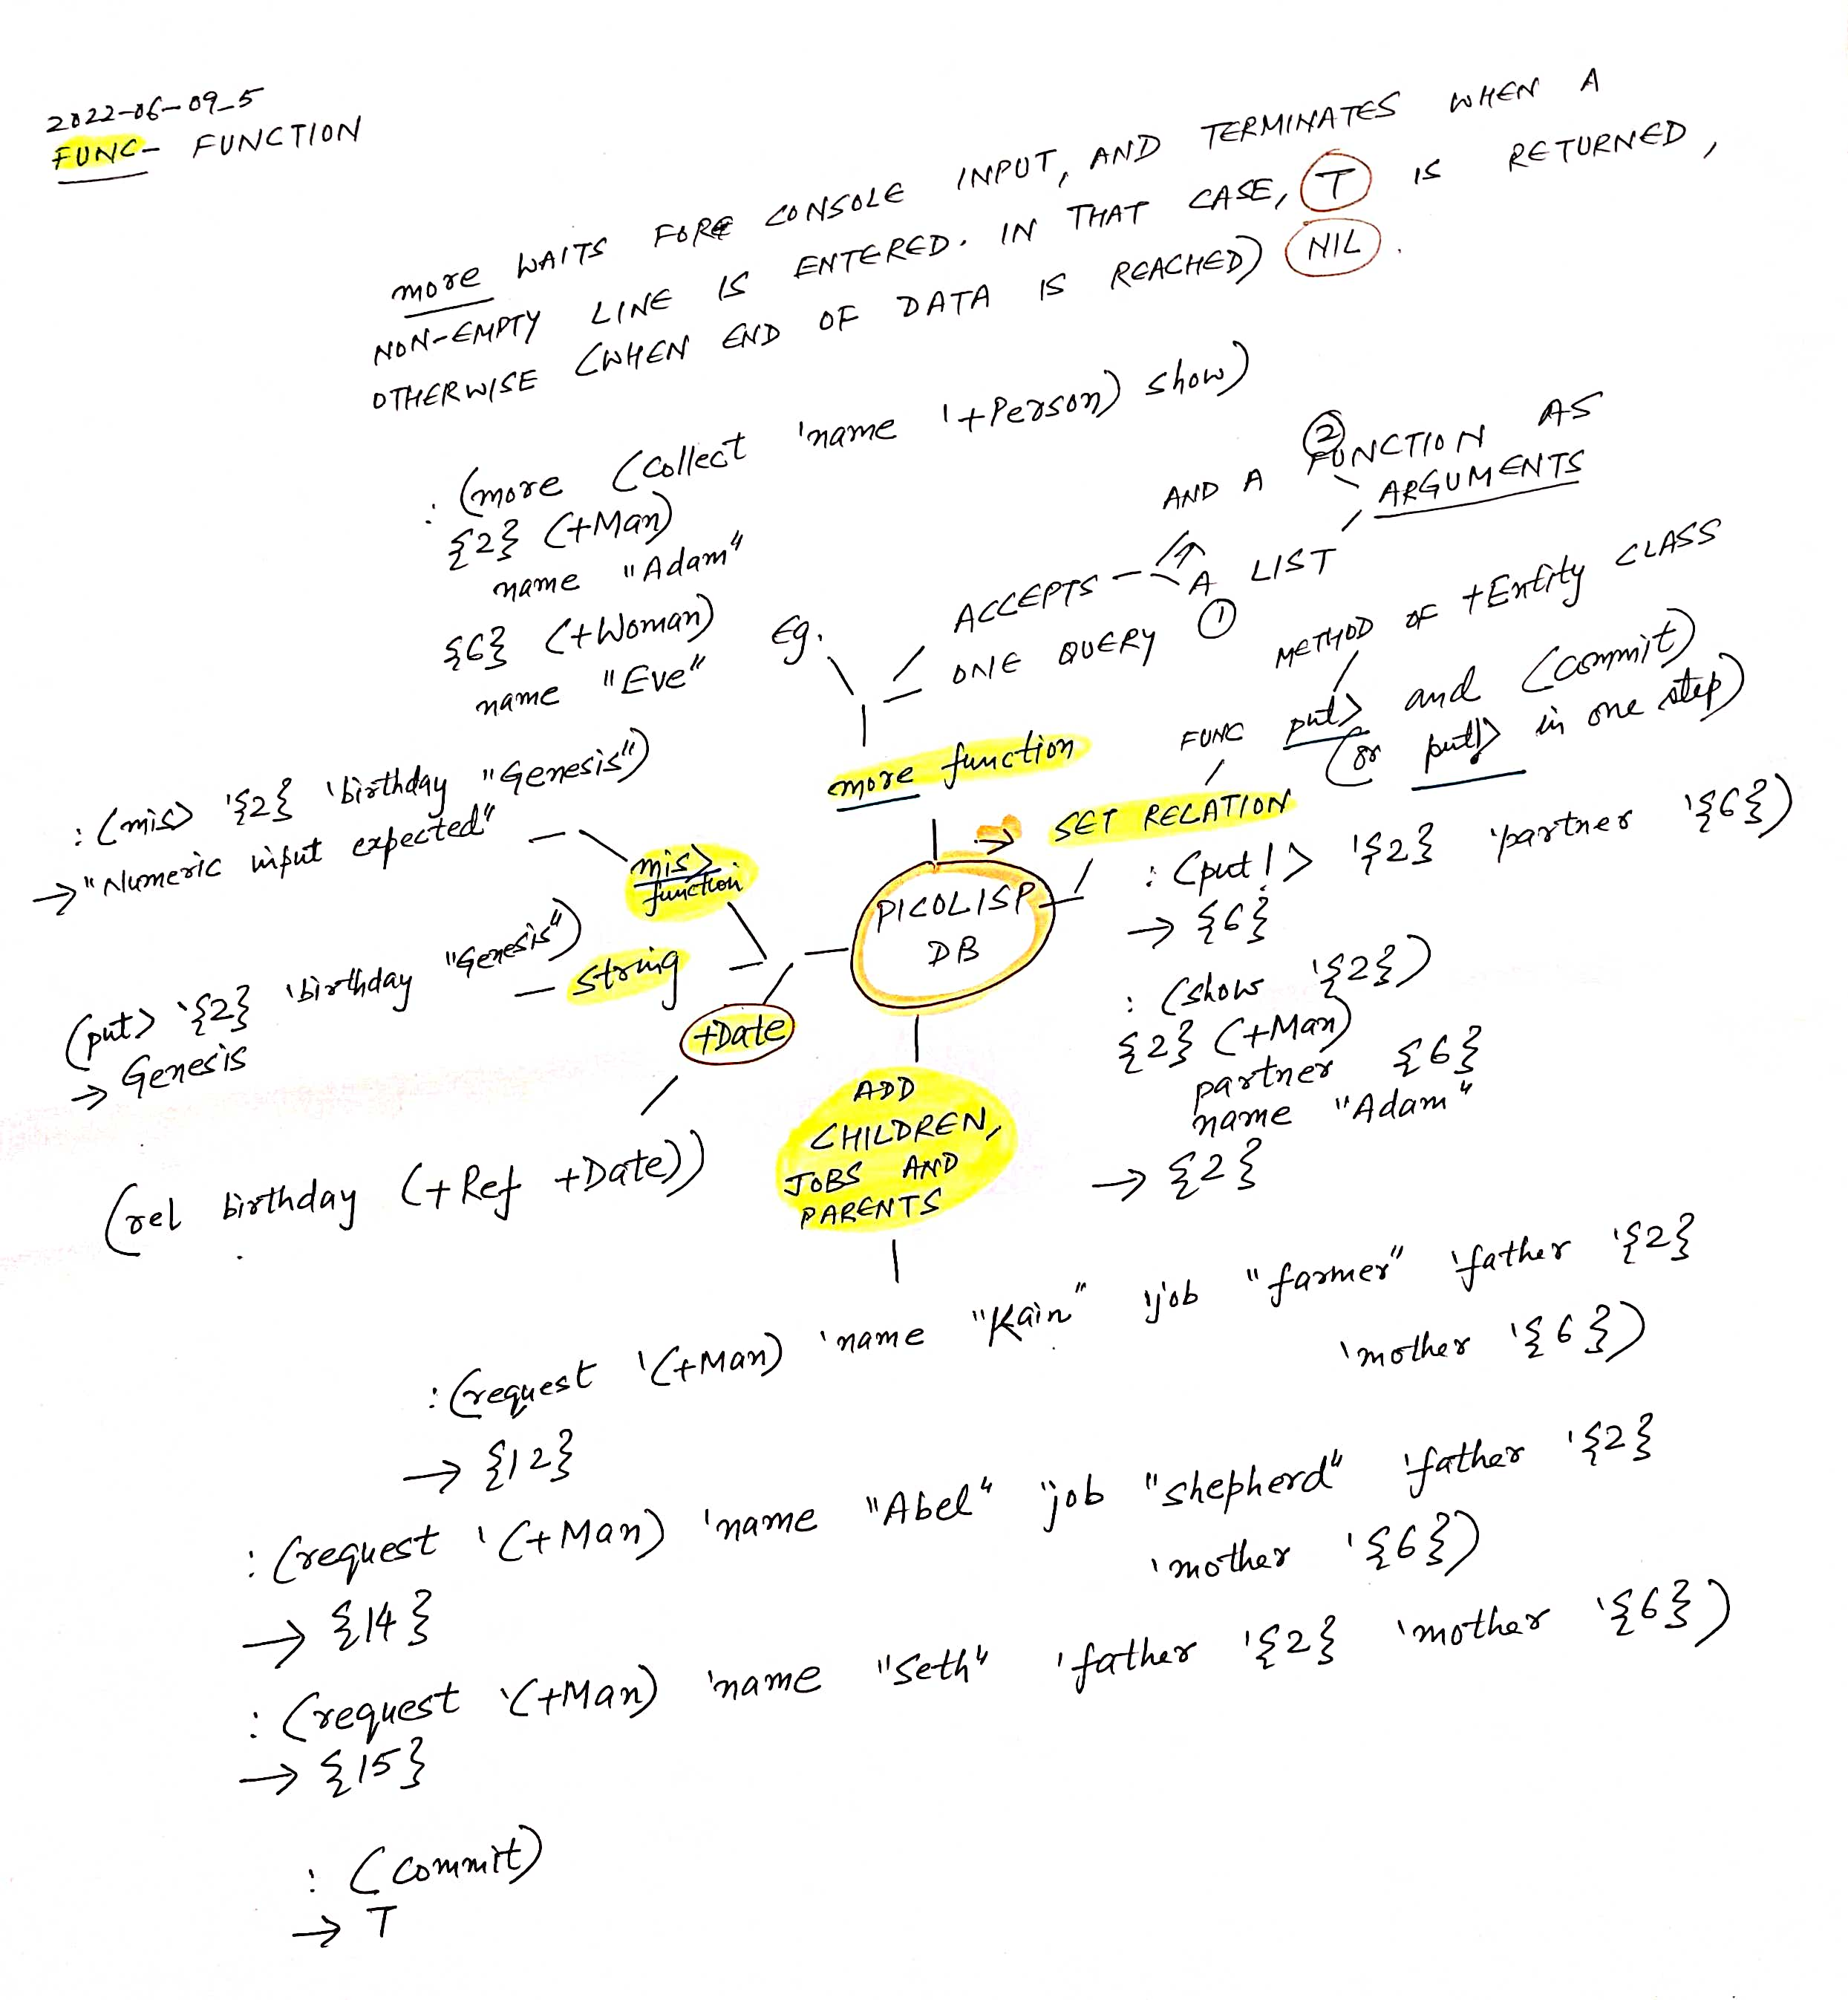 2022-06-09_5
FUNC- FUNCTION
more WAITS FOR CONSOLE INPUT, AND TERMINATES WHEN A
NON-EMPTY LINE IS ENTERED. IN THAT CASE, T IS RETURNED,
OTHERWISE (WHEN END OF DATA IS REACHED) NIL.
: (more (collect 'name '+Person) show)
{2} (+Man)
name "Adam"
{6} (+Woman)
name "Eve"
Eg.
ACCEPTS - A LIST
①
AND A FUNCTION AS
②
ARGUMENTS
ONE QUERY
more function
METHOD OF +Entity CLASS
FUNC put> and (commit)
(or put!> in one step)
SET RELATION
: (put!> '{2} 'partner '{6})
→ {6}
: (show '{2})
{2} (+Man)
partner {6}
name "Adam"
→ {2}
PICOLISP
DB
: (mis> '{2} 'birthday "Genesis")
→ "Numeric input expected"
mis>
function
(put> '{2} 'birthday "Genesis")
→ Genesis
string
+Date
(rel birthday (+Ref +Date))
ADD
CHILDREN,
JOBS AND
PARENTS
: (request '(+Man) 'name "Kain" 'job "farmer" 'father '{2}
'mother '{6})
→ {12}
: (request '(+Man) 'name "Abel" 'job "shepherd" 'father '{2}
'mother '{6})
→ {14}
: (request '(+Man) 'name "Seth" 'father '{2} 'mother '{6})
→ {15}
: (commit)
→ T